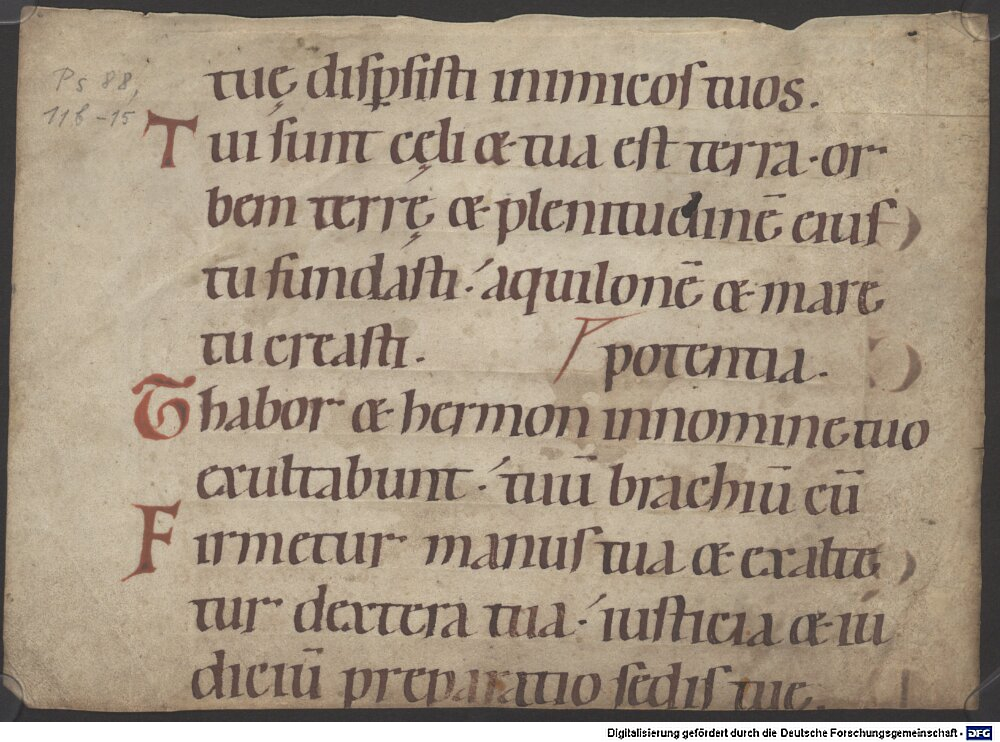 Ps 88,
11b-15
tuę disp̲sisti inimicos tuos.
Tui sunt cęli & tua est terra · or
bem terrę & plenitudinē eius
tu fundasti · aquilonē & mare
tu creasti · potentia ·
Thabor & hermon innomine tuo
exultabunt · tuū brachiū cū
Firmetur manus tua & exalte
tur dextera tua · iusticia & iu
diciū preparatio sedis tuę.
Digitalisierung gefördert durch die Deutsche Forschungsgemeinschaft - DFG